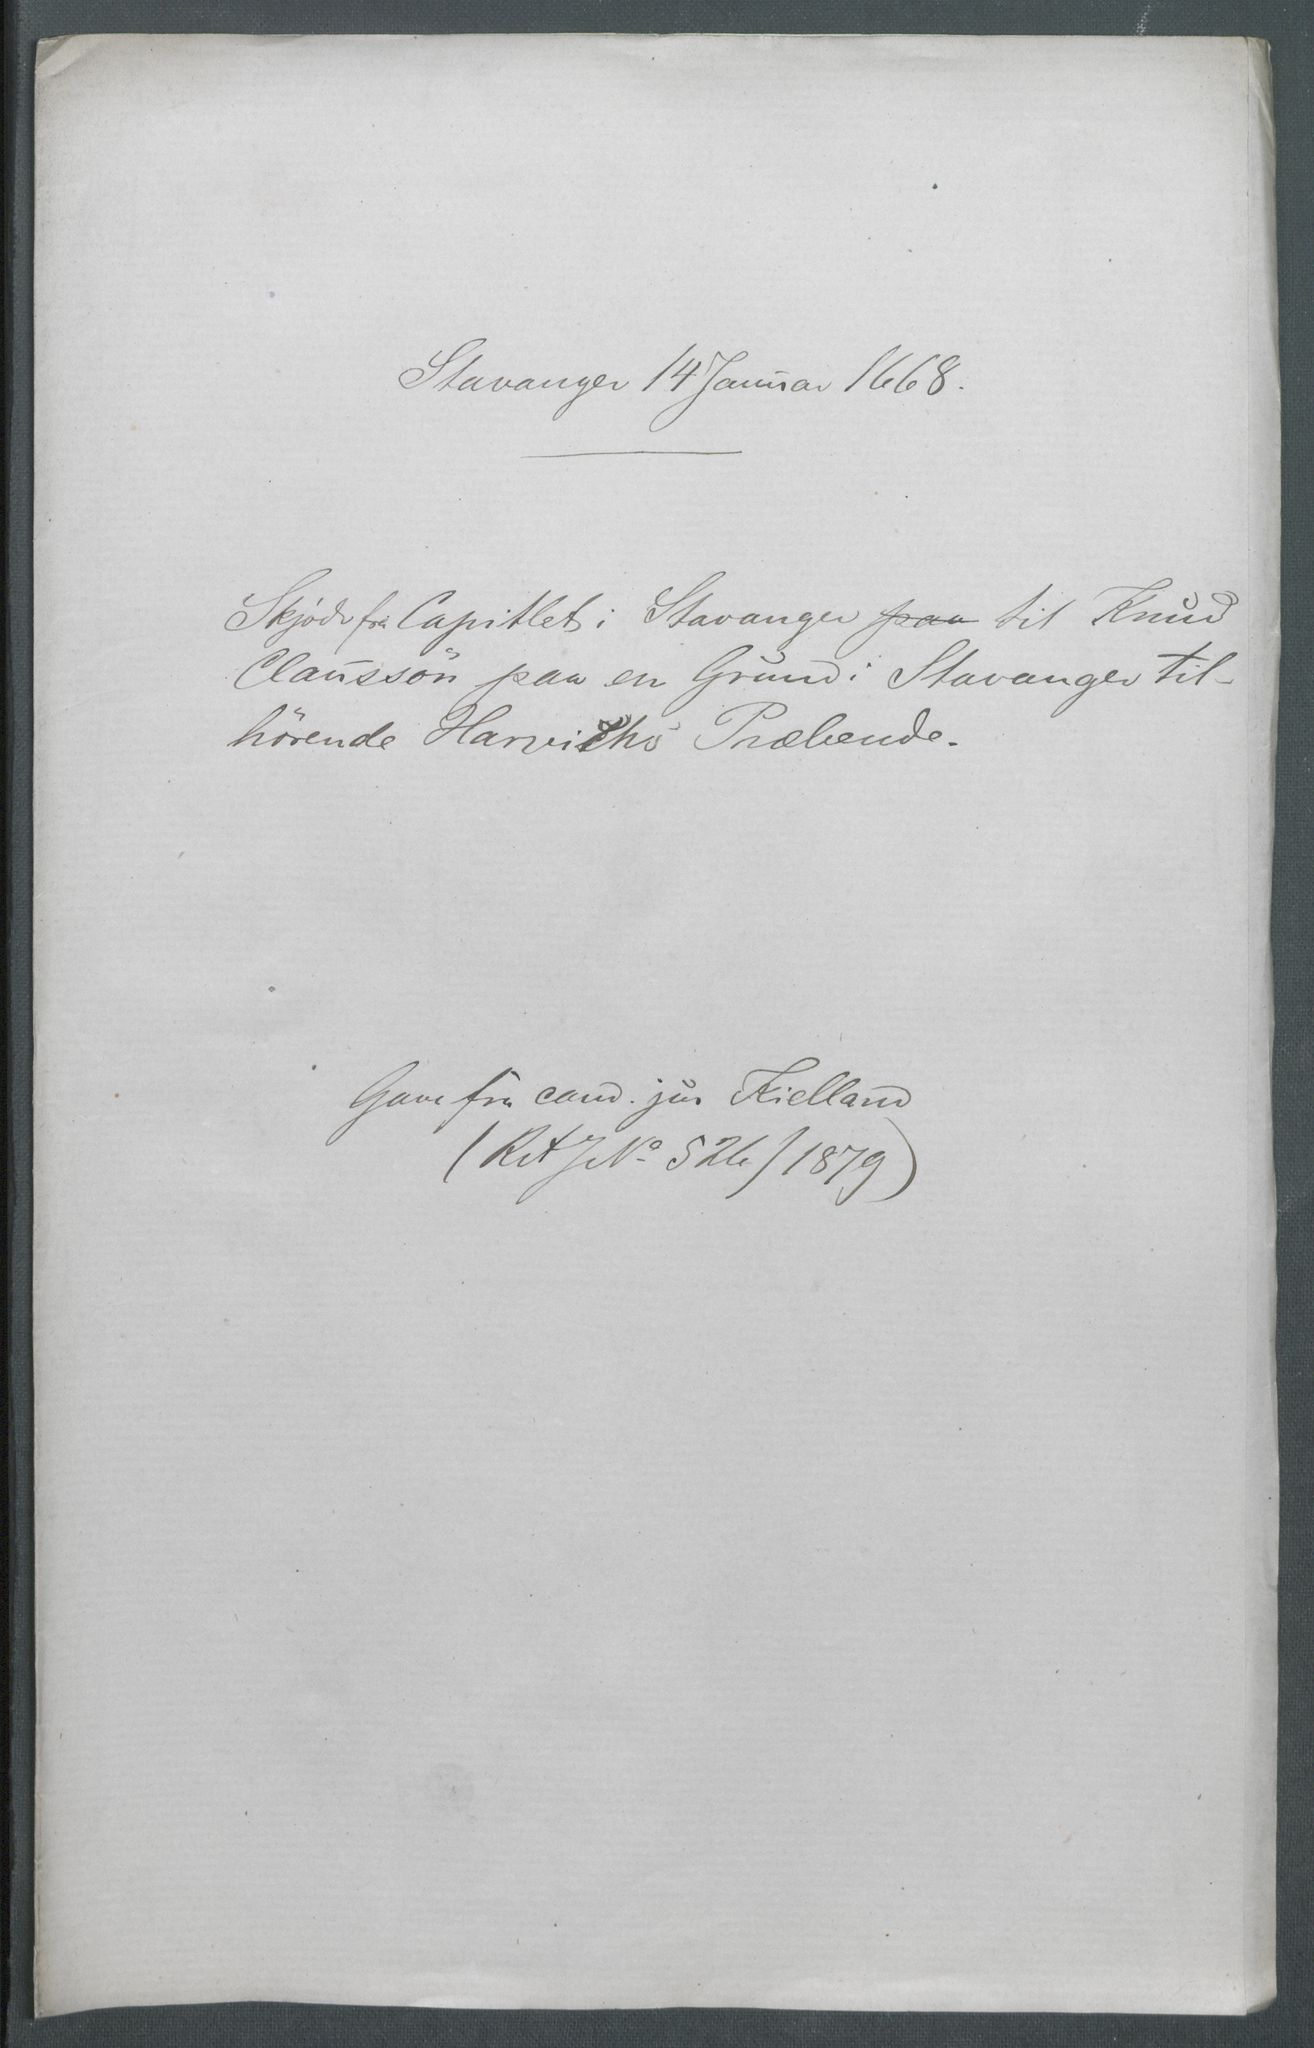 Stavanger 14 Januar 1668.
Skjöde fra Capitlet i Stavanger paa til Knud
Claussön paa en Grund i Stavanger til-
hörende Præbende.
Gave fra cand. jur Kielland
(RA J No 526/1879)